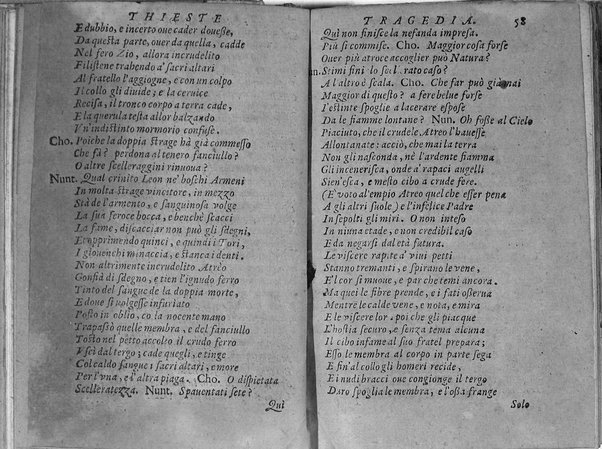 THIESTE
E dubbio, e incerto oue cader douesse,
Da questa parte, ouer da quella, cadde
Nel fero Zio, allora incrudelito
Filistene trahendo a' sacri altari
Al fratello l'aggiogne, e con un colpo
Il collo gli diuide; e la ceruice
Recisa, il tronco corpo a terra cade,
E la querula testa allor balzando
Vn'indistinto mormorio confuse.
Cho. Poiche la doppia strage hà già commesso
Che fà? perdona al tenero fanciullo?
O altre scelleraggini rinuoua?
Nunt. Qual crinito Leon ne' boschi Armeni
In molta strage vincitore, in mezzo
Stà de l'armento, e sanguinosa volge
La sua feroce bocca, e benchè scacci
La fame, discacciar non può gli sdegni,
E opprimendo quinci, e quindi i Tori,
I giouenchi minaccia, e stanca i denti.
Non altrimente incrudelito Atreo
Gonfia di sdegno, e tien l'ignudo ferro
Tinto del sangue de la doppia morte,
E doue si volgesse infuriato
Posto in oblio, co la nocente mano
Trapassò quelle membra, e del fanciullo
Tosto nel petto accolto il crudo ferro
Vscì dal tergo; cade quegli, e tinge
Col caldo sangue i sacri altari, e more
Per l'vna, e l'altra piaga. Cho. O dispietata
Scelleratezza. Nunt. Spauentati sete?
Quì
TRAGEDIA. 58
Quì non finisce la nefanda impresa.
Più si commise. Cho. Maggior cosa forse
Ouer più atroce accoglier può Natura?
Nun. Stimi finito lo scelerato caso?
A l'altro è scala. Cho. Che far può già mai
Maggior di questo? a fere belue forse
L'estinte spoglie a lacerare espose
Da le fiamme lontane? Nun. Oh fosse al Cielo
Piaciuto, che il crudele Atreo l'hauesse
Allontanate: acciò, che mai la terra
Non gli nasconda, nè l'ardente fiamma
Gli incenerisca, onde a' rapaci augelli
Sien'esca, e mesto cibo a crude fere.
(E' voto al'empio Atreo quel che esser pena
A gli altri suole) e l'infelice Padre
Insepolti gli miri. O non inteso
In niuna etade, e non credibil caso
E da negarsi da l'età futura.
Le viscere rapite a' viui petti
Stanno tremanti, e spirano le vene,
E'l cor si muoue, e par che temi ancora.
Ma quei le fibre prende, e i fati osserua
Mentre le calde vene, e nota, e mira
E le viscere lor. poi che gli piacque
L'hostia securo, e senza tema alcuna
Il cibo infame al suo fratel prepara;
Esso le membra al corpo in parte sega
E fin'al collo gli homeri recide,
E i nudi bracci oue congionge il tergo
Duro spoglia le membra, e l'ossa frange
Solo